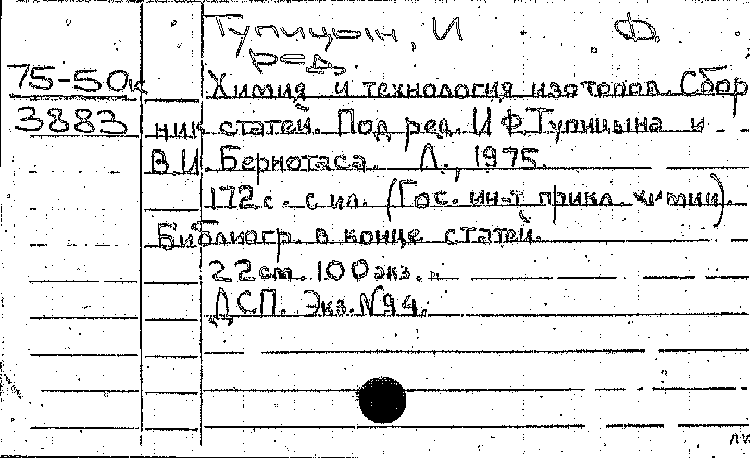 Тупицын, И Ф.
ред.
75-50к Химия и технология изотопов. Сбор
3883 ник статей. Под ред. И.Ф.Тупицына и
В.И. Бернотаса. Л., 1975.
172 с. с ил. (Гос. ин-т прикл. химии).
Библиогр. в конце статей.
22 см. 100 экз.
ДСП. Экз. №94.